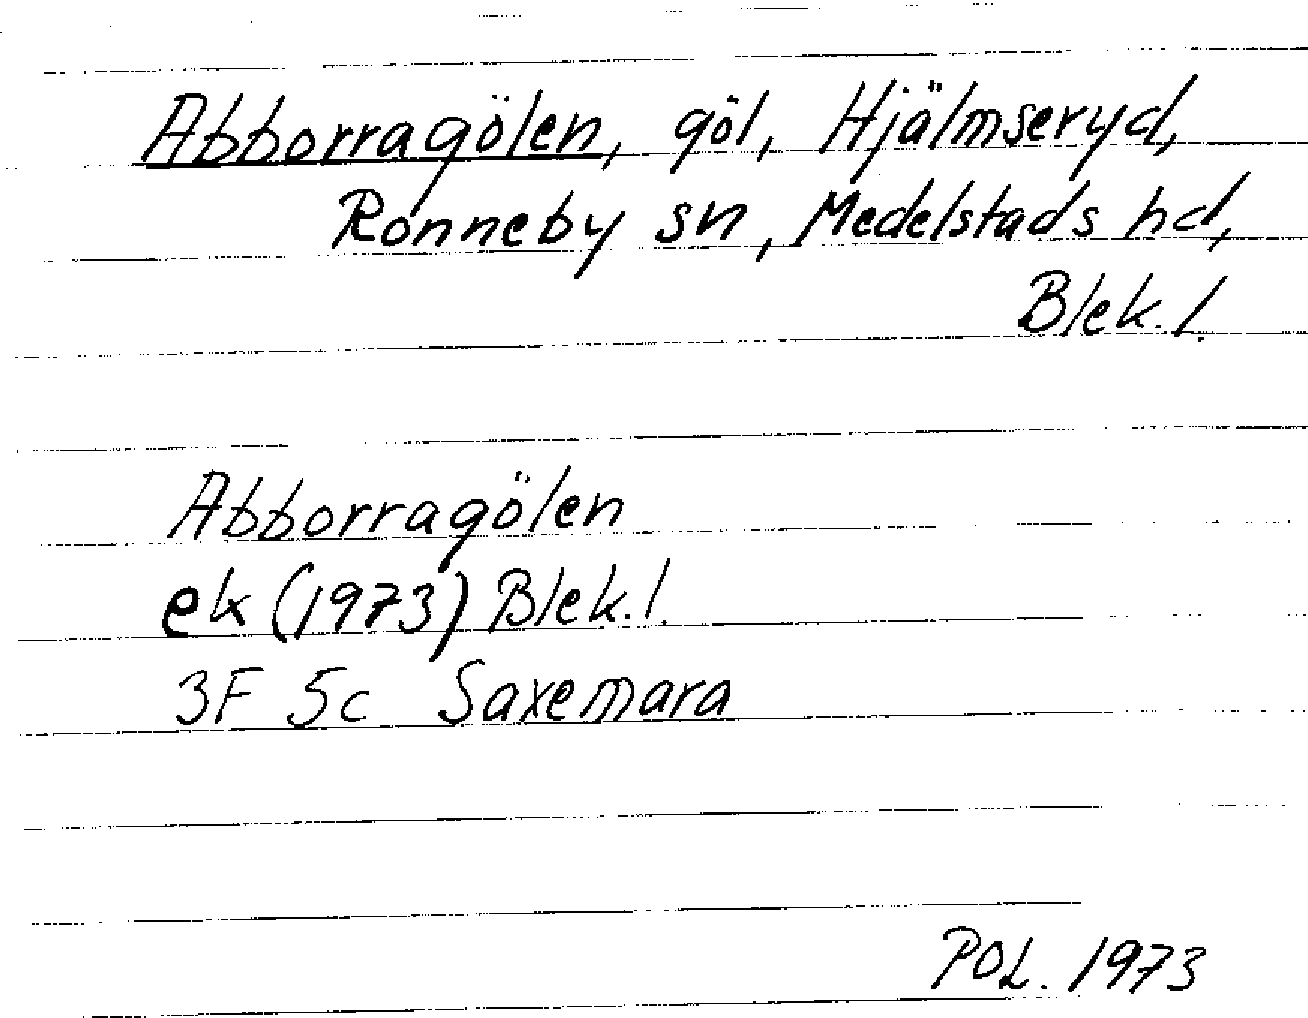 Abborragölen, göl, Hjälmseryd,
Ronneby sn, Medelstads hd,
Blek. l.
Abborragölen
ek (1973) Blek. l.
3F 5c Saxemara
POL. 1973